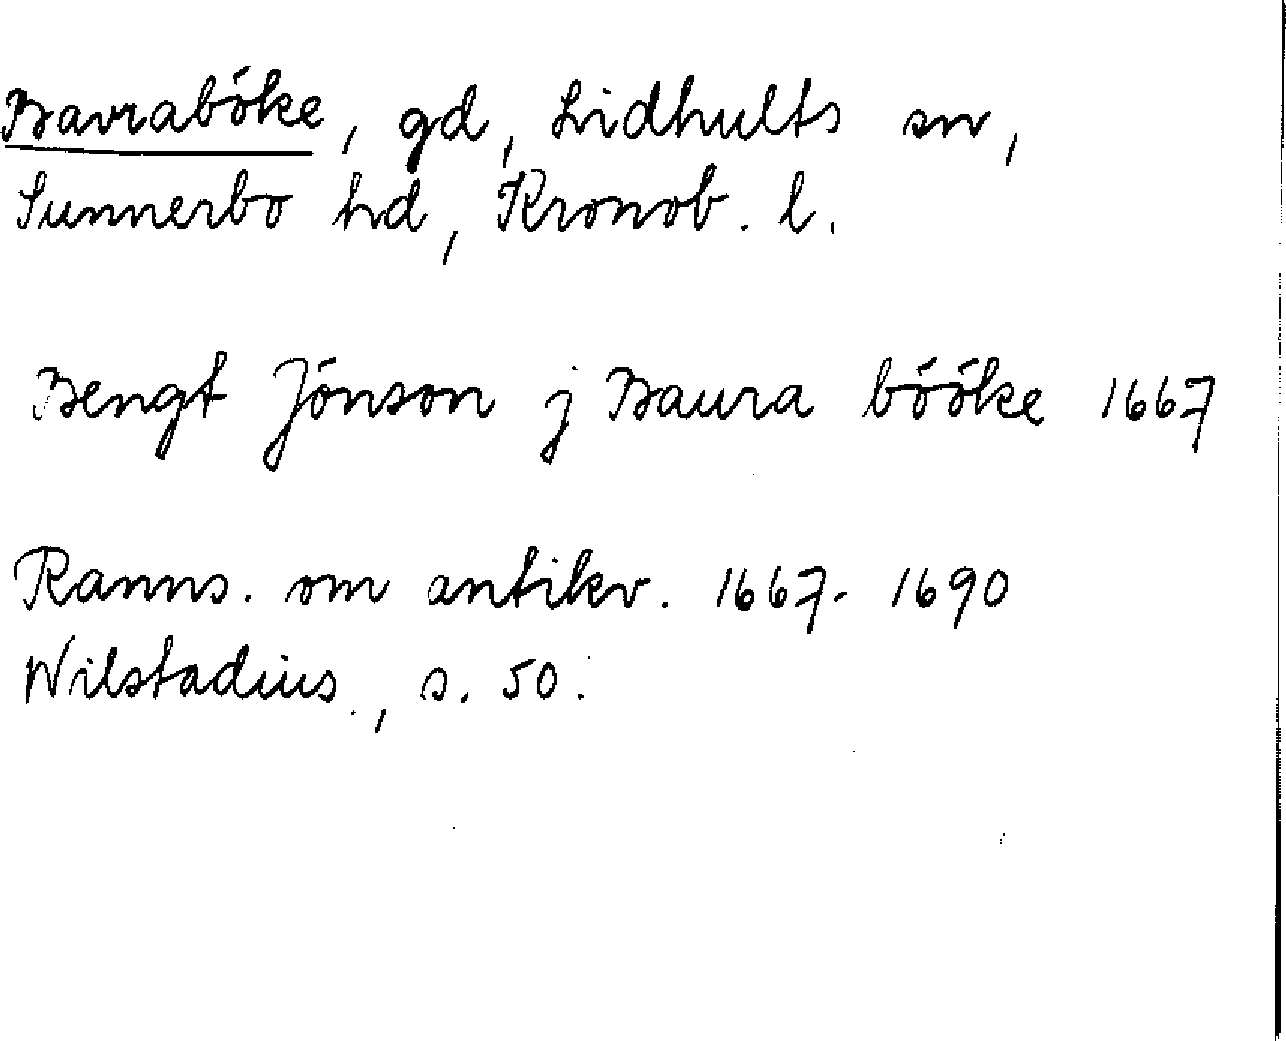 Bavraböke, gd, Lidhults sn,
Sunnerbo hd, Kronob. l.
Bengt Jönson j Baura bööke 1667
Ranns. om antikv. 1667-1690
Wilstadius., s. 50.